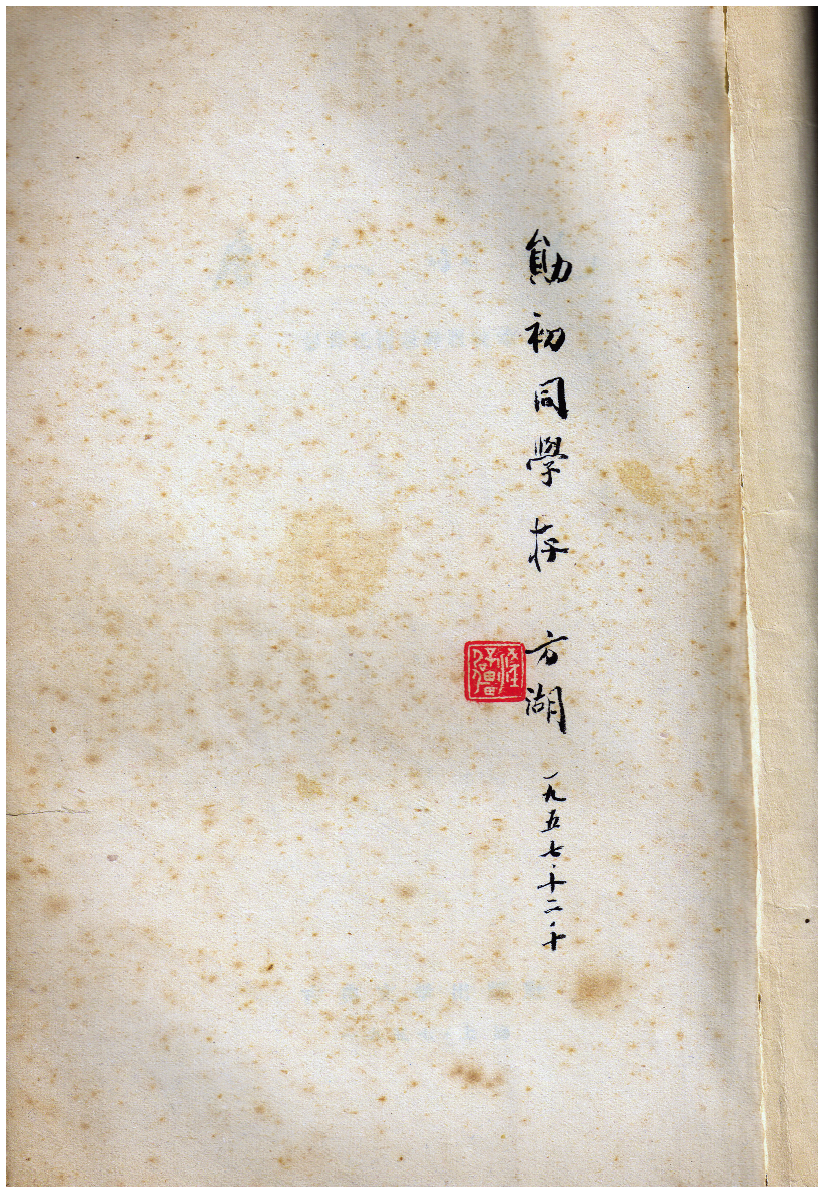 勛初同學存 方湖 一九五七·十二·十